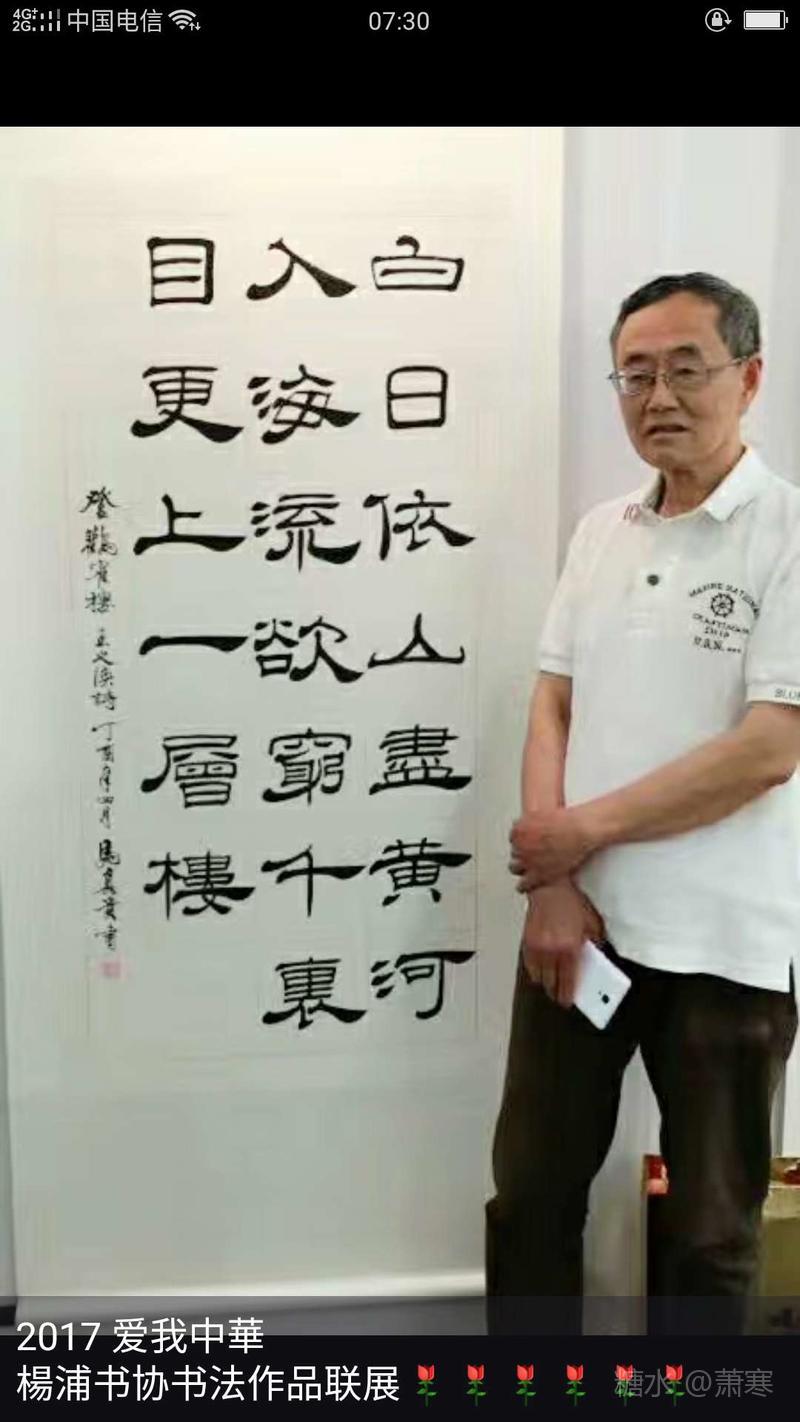 4G+
2G
中国电信
07:30
白日依山盡黄河
入海流欲窮千裏
目更上一層樓
登鸛雀樓 王之渙詩 丁酉年四月
2017 爱我中華
楊浦书协书法作品联展🌹🌹🌹🌹🌹🌹
糖水@萧寒